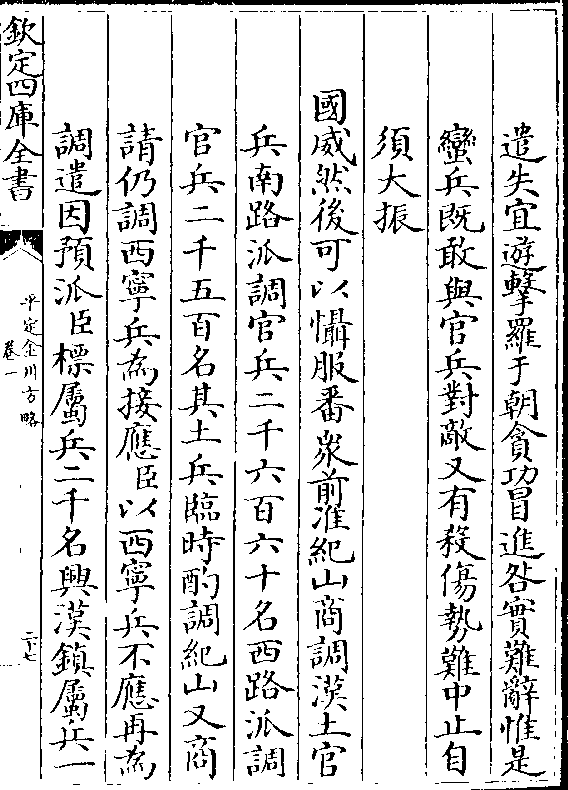 遣失宜遊擊羅于朝貪功冒進咎實難辭惟是
蠻兵既敢與官兵對敵又有殺傷勢難中止自
須大振
國威然後可以懾服番衆前准紀山商調漢土官
兵南路派調官兵二千六百六十名西路派調
官兵二千五百名其土兵臨時酌調紀山又商
請仍調西寧兵為接應臣以西寧兵不應再為
調遣因預派臣標屬兵二千名興漢鎮屬兵一
欽定四庫全書
平定金川方略
卷一
二十七